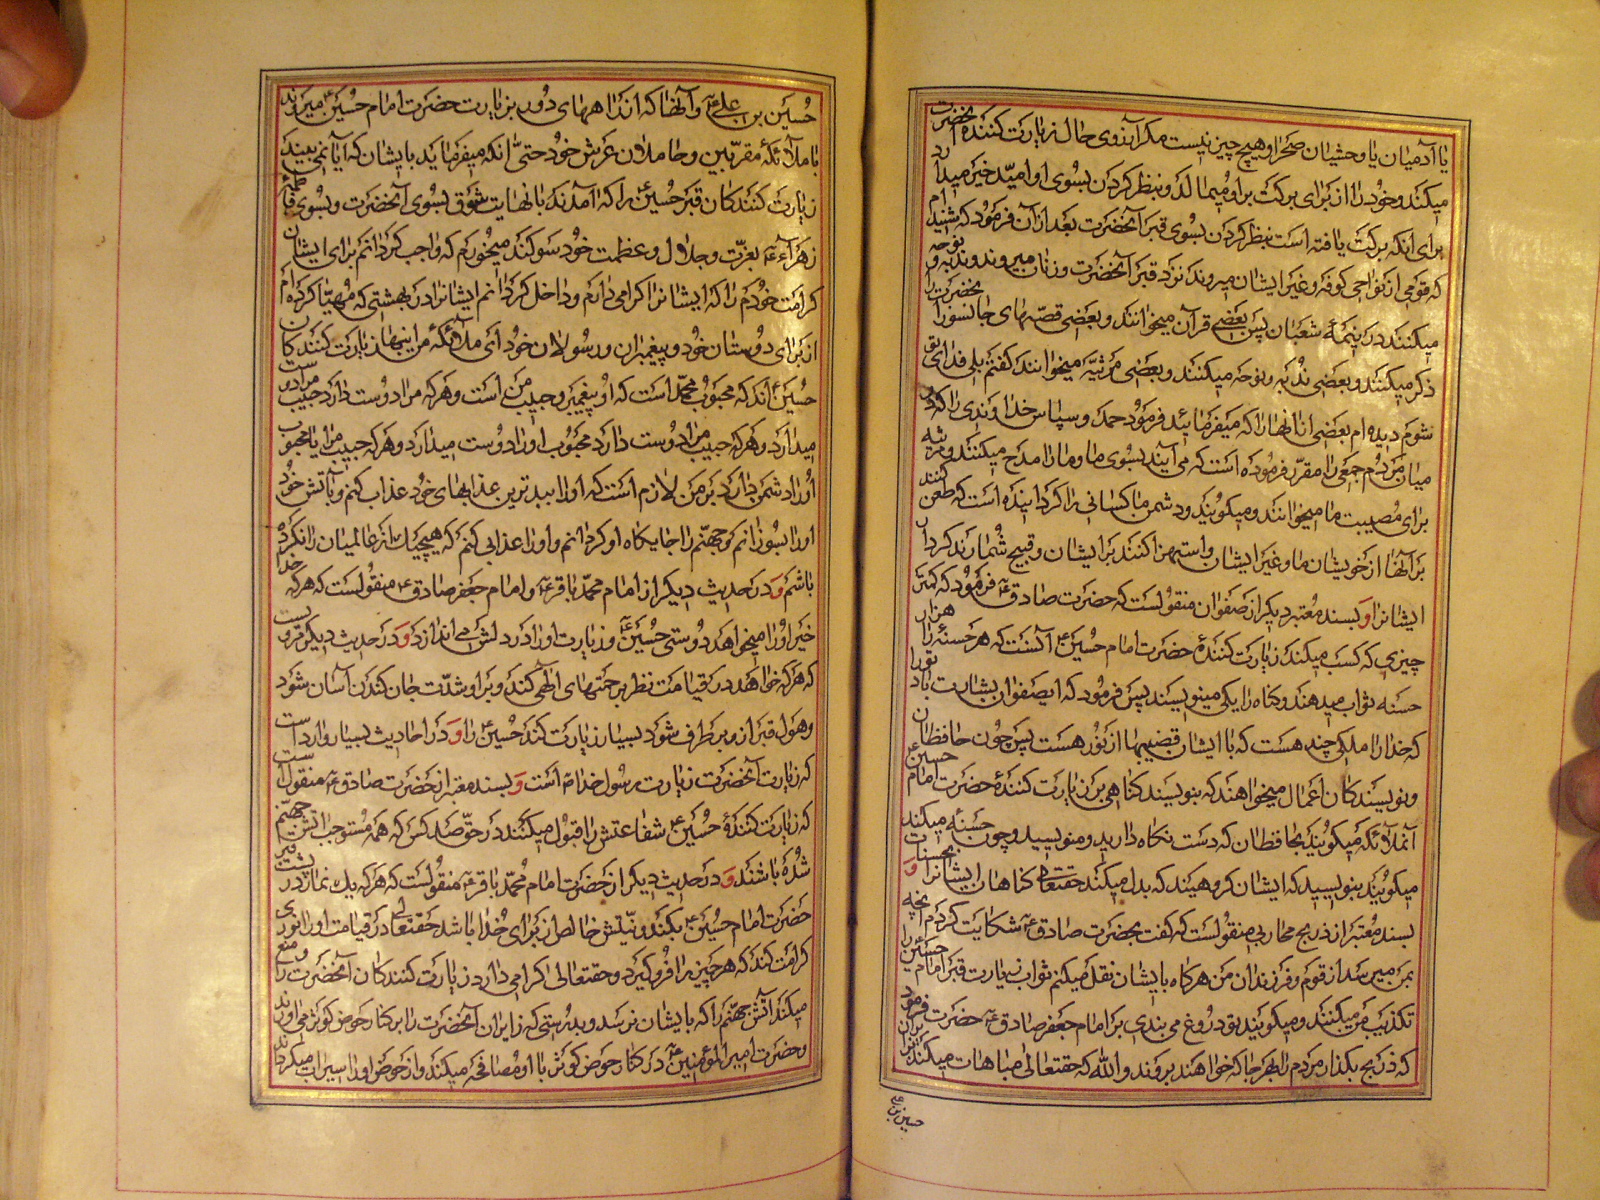 یا آدمیان یا وحشیان صحرا و هیچ چیز نیست مکر آرزوی حال زیارت کنندهٔ آنحضرت
میکند و خود را از برای برکت بر او میمالد و بنظر کردن بسوی او امید خیر میدارد
برای آنکه برکت یافته است بنظر کردن بسوی قبر آنحضرت بعد از آن فرمود که شنیده‌ام
که قومی از نواحی کوفه و غیر ایشان میروند نزد قبر آنحضرت و زنان میروند و ندبه و نوحه
میکنند در نیمهٔ شعبان پس بعضی قرآن میخوانند و بعضی قصّه‌های جانسوز آنحضرت را
ذکر میکنند و بعضی ندبه و نوحه میکنند و بعضی مرثیه میخوانند کفتم بلی فدای تو
شوم دیده‌ام بعضی از آنها را که میفرمائید فرمود حمد و سپاس خداوندی را که در
میان مردم جمعی را مقرّر فرموده است که می‌آیند بسوی ما و ما را مدح میکنند و مرثیه
برای مصیبت ما میخوانند و میکویند و دشمن ما کسانی را کردانیده است که طعن کنند
بر آنها از خویشان ما و غیر ایشان و استهزا کنند بر ایشان و قبیح شمارند کردار
ایشانرا و بسند معتبر دیکر از صفوان منقولست که حضرت صادق ع فرمود که کمتر
چیزی که کسب میکند زیارت کنندهٔ حضرت امام حسین ع آنست که هر حسنهٔ را هزار
حسنه ثواب میدهند و کناه را یکی مینویسند پس فرمود که ایصفوان بشارت باد تو را
که خدا را ملکی چند هست که با ایشان قضیبها از نور هست پس چون حافظان
و نویسندکان اعمال میخواهند که بنویسند کناهی بر زیارت کنندهٔ حضرت امام حسین ع
آنملائکه میکویند بحافظان که دست نکاه دارید و منویسید و چون حسنه میکند
میکویند بنویسید که ایشان کروهیند که بدل میکند حقتعالی کناهان ایشانرا بحسنات و
بسند معتبر از ذریح محاربی منقولست که کفت بحضرت صادق ع شکایت کردم آنچه
بمن میرسد از قوم و فرزندان من هرکاه بایشان نقل میکنم ثواب زیارت قبر امام حسین را
تکذیب من میکنند و میکویند تو دروغ می‌بندی بر امام جعفر صادق ع حضرت فرمود
که ذریح بکذار مردم را بهر جا که خواهند بروند والله که حقتعالی مباهات میکند بزایران
حسین بن ع
حسین بن علی ع و آنها که از راههای دور بزیارت حضرت امام حسین ع میروند
با ملائکهٔ مقرّبین و حاملان عرش خود حتی آنکه میفرماید بایشان که آیا نمی‌بینید
زیارت کنندکان قبر حسین ع را که آمدند با نهایت شوق بسوی آنحضرت و بسوی فاطمهٔ
زهراء ع بعزّت و جلال و عظمت خود سوکند میخورم که واجب کردانم برای ایشان
کرامت خودم را که ایشانرا کرامی دارم و داخل کردانم ایشانرا در بهشتی که مهیّا کرده‌ام
از برای دوستان خود و پیغمبران و رسولان خود ای ملائکهٔ من اینها زیارت کنندکان
حسین‌اند که محبوب محمّد است که او پیغمبر و حبیب من است و هر که مرا دوست دارد حبیب مرا دوست
میدارد و هر که حبیب مرا دوست دارد محبوب او را دوست میدارد و هر که حبیب مرا یا محبوب
او را دشمن دارد بر من لازم است که او را ببدترین عذابهای خود عذاب کنم و بآتش خود
او را بسوزانم و جهنّم را جایکاه او کردانم و او را عذابی کنم که هیچیک از عالمیان را نکرده
باشم و در حدیث دیکر از امام محمّد باقر ع و امام جعفر صادق ع منقولست که هر که خدا
خیر او را میخواهد دوستی حسین ع و زیارت او را در دلش می‌اندازد و در حدیث دیکر مرویست
که هر که خواهد در قیامت نظر برحمتهای الهی کند و بر او شدّت جان کندن آسان شود
و هول قبر از او برطرف شود بسیار زیارت کند حسین ع را و در احادیث بسیار وارد است
که زیارت آنحضرت زیارت رسول خدا است و بسند معتبر از حضرت صادق ع منقولست
که زیارت کنندهٔ حسین ع شفاعتش را قبول میکنند در حقّ صد کس که همه مستوجب آتش جهنّم
شده باشند و در حدیث دیکر از حضرت امام محمّد باقر ع منقولست که هر که یک نماز در پشت قبر
حضرت امام حسین ع بکند و نیّتش خالص از برای خدا باشد حقتعالی در قیامت او را نوری
کرامت کند که هر چیز را فرو کیرد و حقتعالی کرامی دارد زیارت کنندکان آنحضرت را و منع
میکند آتش جهنّم را که بایشان نرسد و بدرستی که زایران آنحضرت را بر کنار حوض کوثر می‌آورند
و حضرت امیر المؤمنین ع در کنار حوض کوثر با او مصافحه میکند و از حوض او را سیراب میکرداند